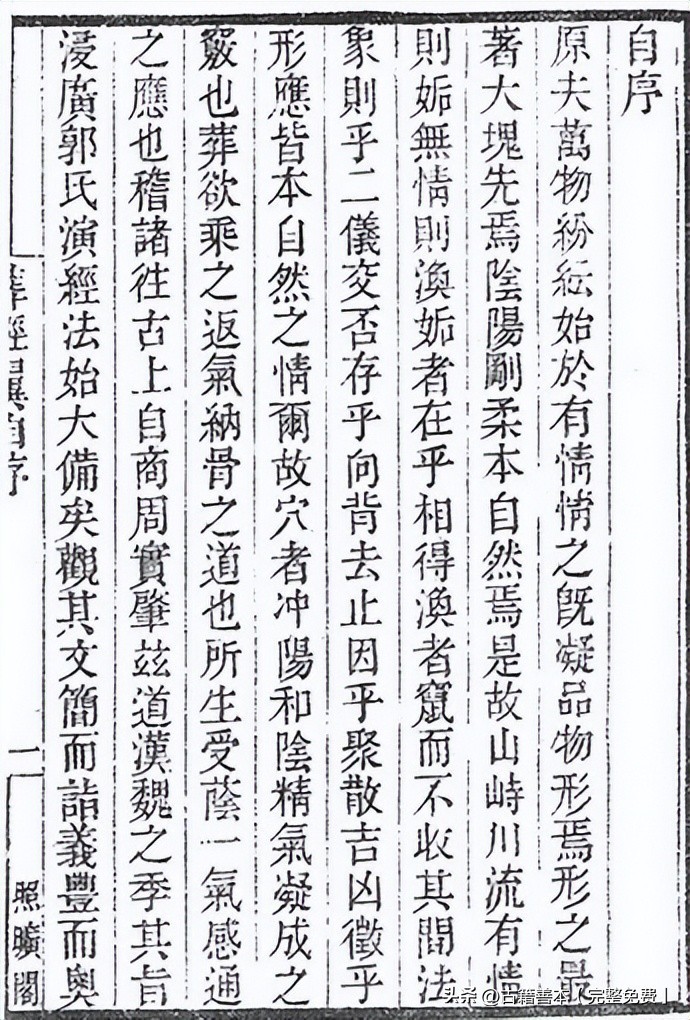 自序
原夫萬物紛紜始於有情情之旣凝品物形焉形之最
著大塊先焉陰陽剛柔本自然焉是故山峙川流有情
則姤無情則渙姤者在乎相得渙者竄而不收其間法
象則乎二儀交否存乎向背去止因乎聚散吉凶徵乎
形應皆本自然之情爾故穴者冲陽和陰精氣凝成之
竅也葬欲乘之返氣納骨之道也所生受蔭一氣感通
之應也稽諸往古上自商周實肇玆道漢魏之季其旨
浸廣郭氏演經法始大備矣觀其文簡而詣義豐而奧
葬經翼自序
一
照曠閣
头条 @古籍善本（完整免费）